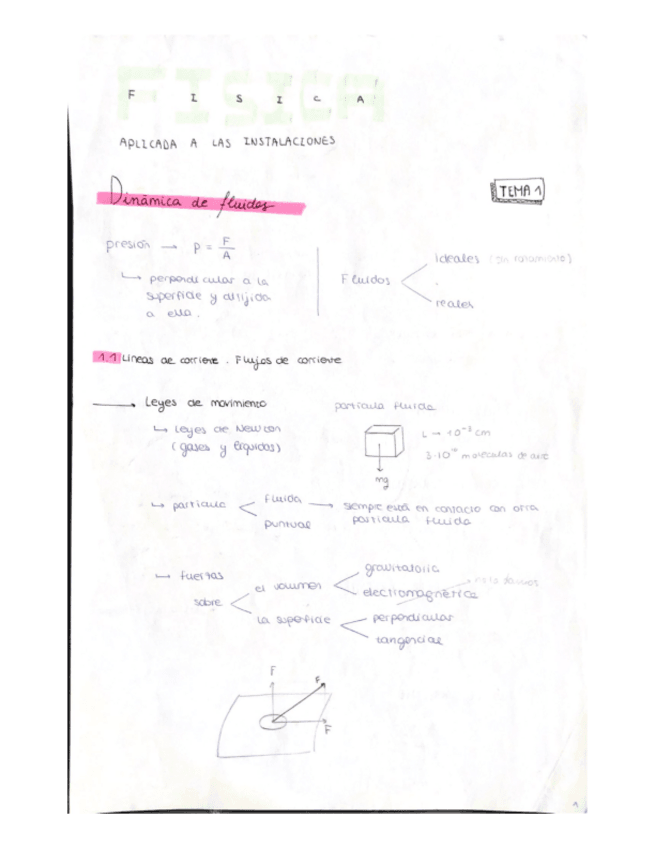 FISICA
APLICADA A LAS INSTALACIONES
TEMA 1
Dinámica de fluidos
presión → P = F/A
↳ perpendicular a la
superficie y dirijida
a ella.
Fluidos
ideales (sin rozamiento)
reales
1.1 Líneas de corriente. Flujos de corriente
→ Leyes de movimiento
↳ Leyes de Newton
(gases y líquidos)
partícula fluida
L → 10⁻³ cm
moléculas de aire
mg
↳ partícula
fluida → siempre está en contacto con otra
partícula fluida
puntual
→ fuerzas
sobre
el volumen
gravitatoria
electromagnética
la superficie
perpendicular
tangencial
F
F
F
1